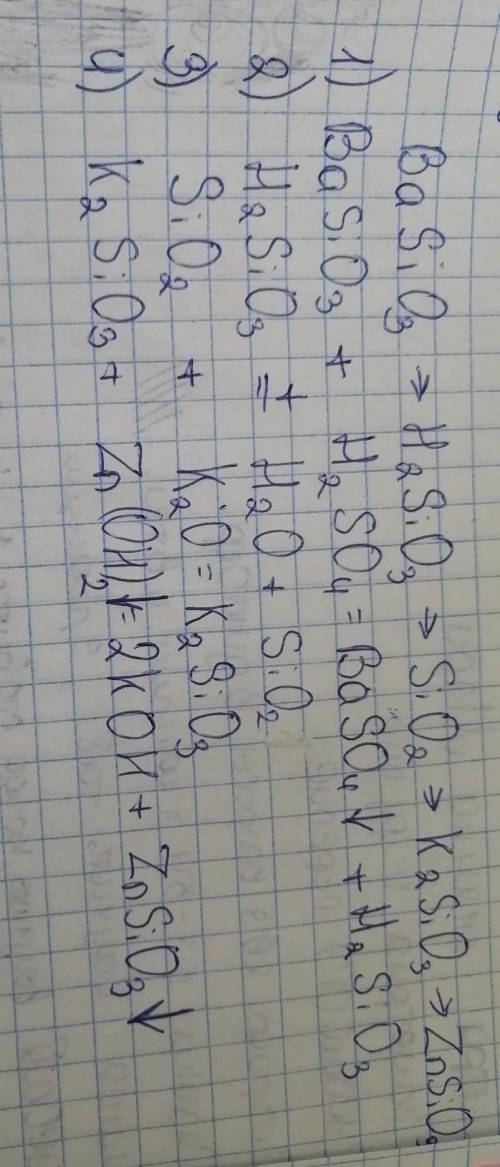 BaSiO₃ → H₂SiO₃ → SiO₂ → K₂SiO₃ → ZnSiO₃
1) BaSiO₃ + H₂SO₄ = BaSO₄↓ + H₂SiO₃
2) H₂SiO₃ =t H₂O + SiO₂
3) SiO₂ + K₂O = K₂SiO₃
4) K₂SiO₃ + Zn(OH)₂↓ = 2KOH + ZnSiO₃↓